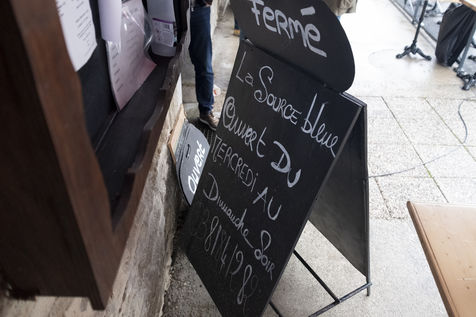 Fermé
La Source bleue
Ouvert Du
Mercredi Au
Dimanche Soir
Ouvert